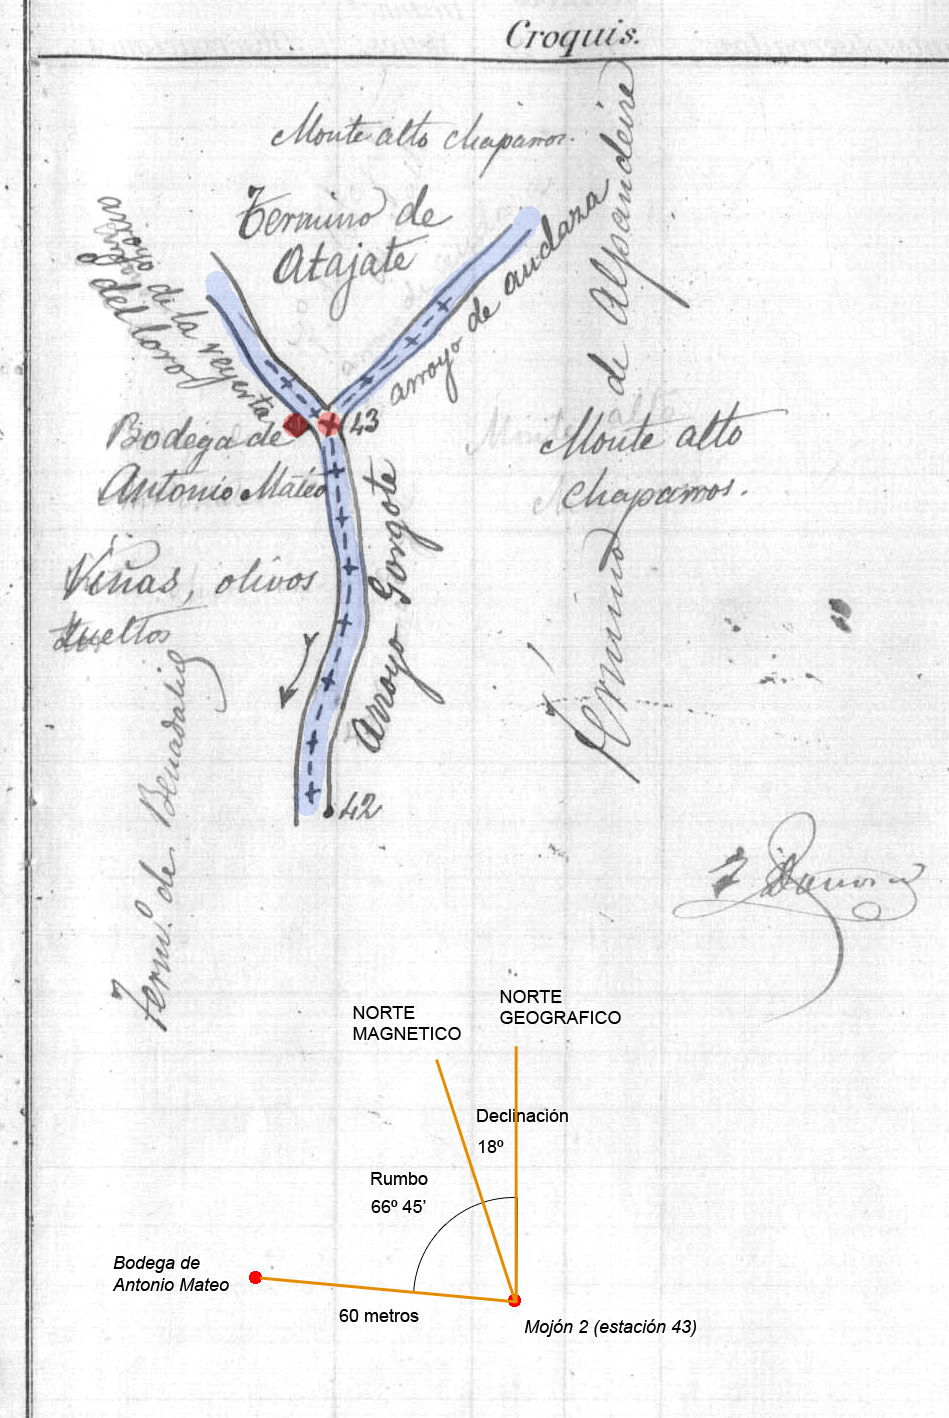 Croquis.
Monte alto chaparros.
Termino de
Atajate
arroyo de la reyerta
o del loro
arroyo de audaza
Termino de Alpandeire
43
Bodega de
Antonio Mateo
Monte alto
chaparros.
Arroyo Gorgote
Viñas, olivos
sueltos
42
Term.o de Benadalid
NORTE
MAGNETICO
NORTE
GEOGRAFICO
Declinación
18º
Rumbo
66º 45’
Bodega de
Antonio Mateo
60 metros
Mojón 2 (estación 43)